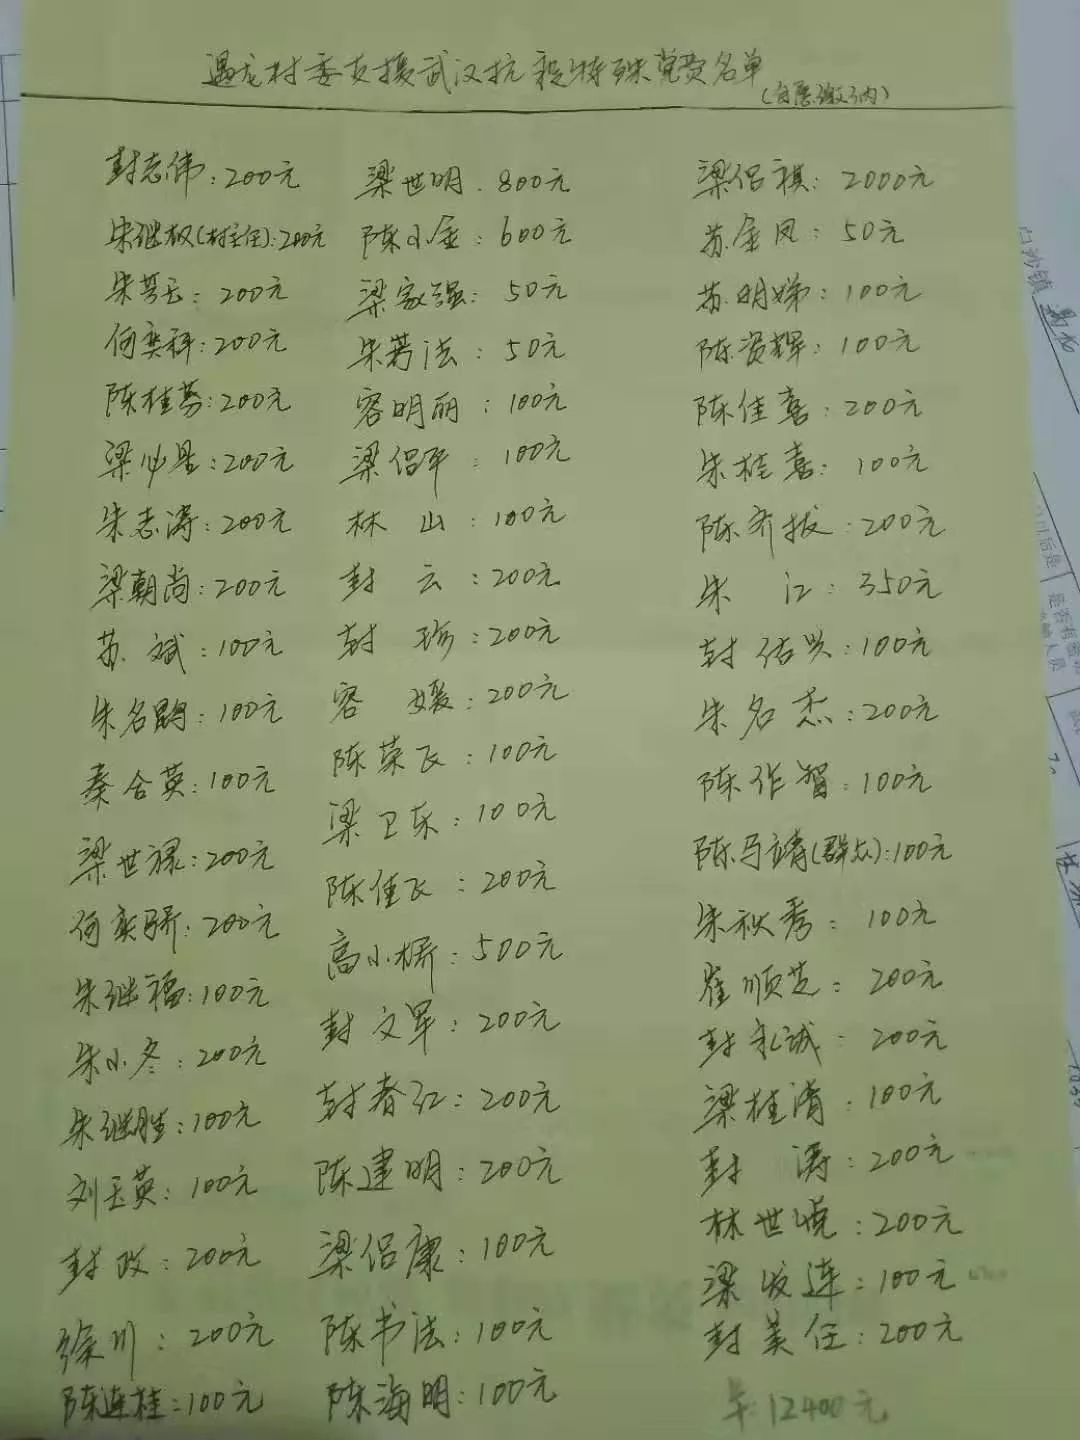 遇龙村委支援武汉抗疫特殊党费名单
(自愿缴纳)
封志伟:200元
朱继权(村主任):200元
朱芳玉:200元
何奕科:200元
陈桂芬:200元
梁必星:200元
朱志涛:200元
梁朝尚:200元
苏斌:100元
朱名鹍:100元
秦合英:100元
梁世禄:200元
何奕骄:200元
朱继福:100元
朱小冬:200元
朱继胜:100元
刘玉英:100元
封政:200元
徐川:200元
陈连桂:100元
梁世明:800元
陈小金:600元
梁家强:50元
朱芳法:50元
容明丽:100元
梁侣平:100元
林山:100元
封云:200元
封珍:200元
容媛:200元
陈荣飞:100元
梁卫东:100元
陈佳飞:200元
高小桥:500元
封文军:200元
封春红:200元
陈建明:200元
梁侣康:100元
陈书法:100元
陈海明:100元
梁侣祺:2000元
苏金凤:50元
苏明娣:100元
陈资辉:100元
陈佳喜:200元
朱桂喜:100元
陈齐拔:200元
朱江:350元
封佑兴:100元
朱名杰:200元
陈作智:100元
陈马靖(群众):100元
朱秋秀:100元
崔顺芝:200元
封永诚:200元
梁桂清:100元
封涛:200元
林世虎:200元
梁发连:100元
封美任:200元
12400元
白沙镇
是否有
人员